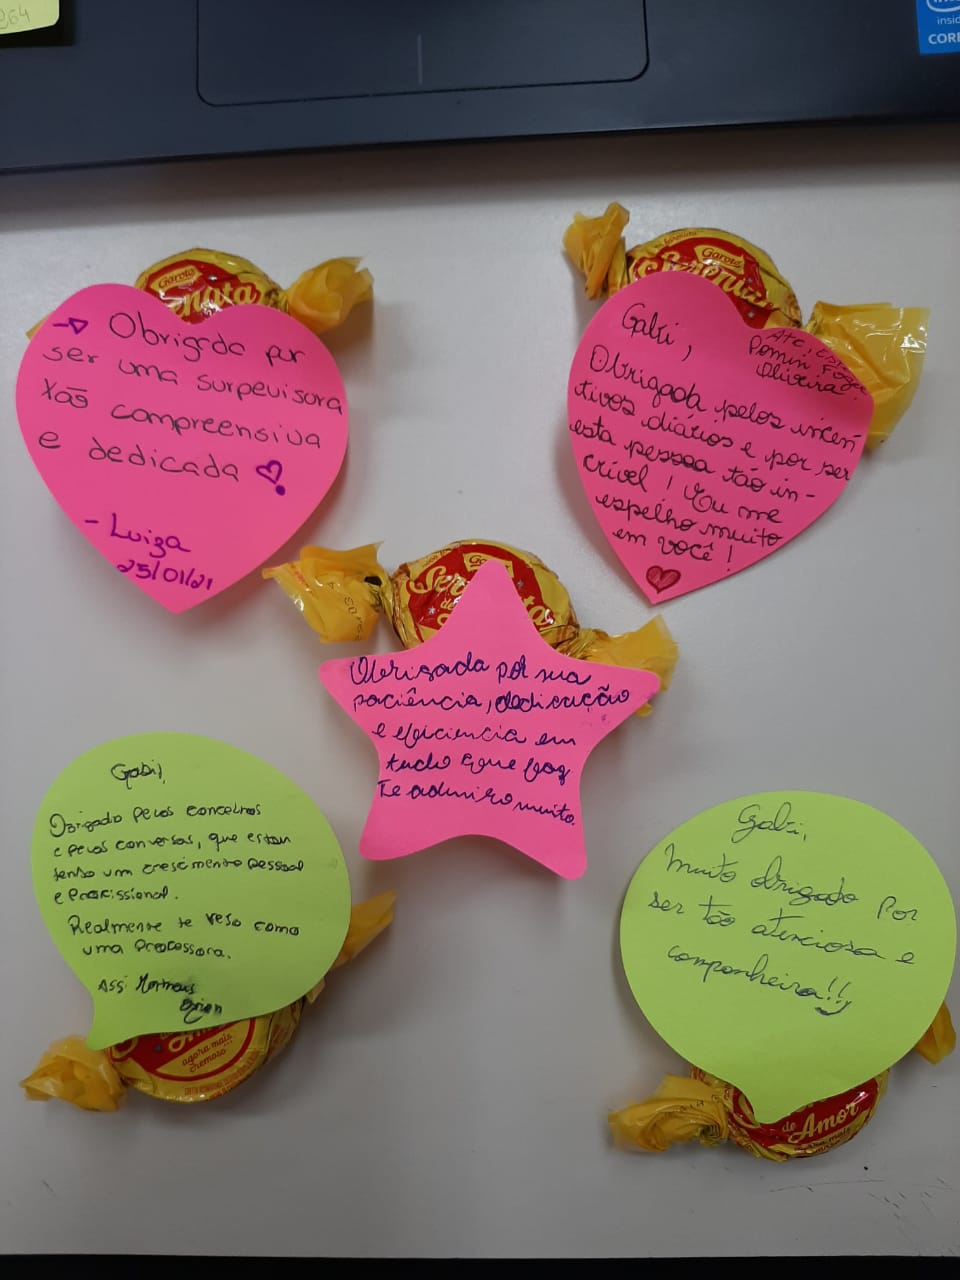 264
intel
inside
CORE
Garoto
Serenata
→ Obrigada por
ser uma surpevisora
tão compreensiva
e dedicada
- Luiza
25/01/21
Garoto
Serenata
Gabi,
Obrigada pelos incen
tivos diários e por ser
esta pessoa tão in-
crível! Eu me
espelho muito
em você!
Oliveira
Garoto
Serenata
de
Obrigada por sua
paciência, dedicação
e eficiencia em
tudo que faz
Te admiro muito.
Gabi,
Obrigado pelos concelhos
e pelas conversas, que estam
sendo um crescimento pessoal
e profissional.
Realmente te vejo como
uma professora.
Ass:
agora mais
cremoso...
Gabi,
Muito obrigado por
ser tão atenciosa e
companheira!!
de Amor